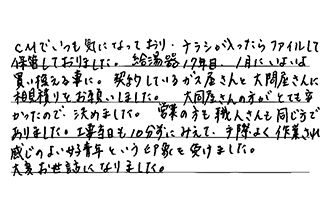 CMでいつも気になっており、チラシが入ったらファイルして
保管しておりました。給湯器17年目、1月にいよいよ
買い換える事に。契約しているガス屋さんと大問屋さんに
相見積りをお願いしました。大問屋さんの方がとても安
かったので、決めました。営業の方も職人さんも同じ方で
ありました。工事当日も10分前にみえて、手際よく作業され
感じのよい好青年という印象を受けました。
大変お世話になりました。